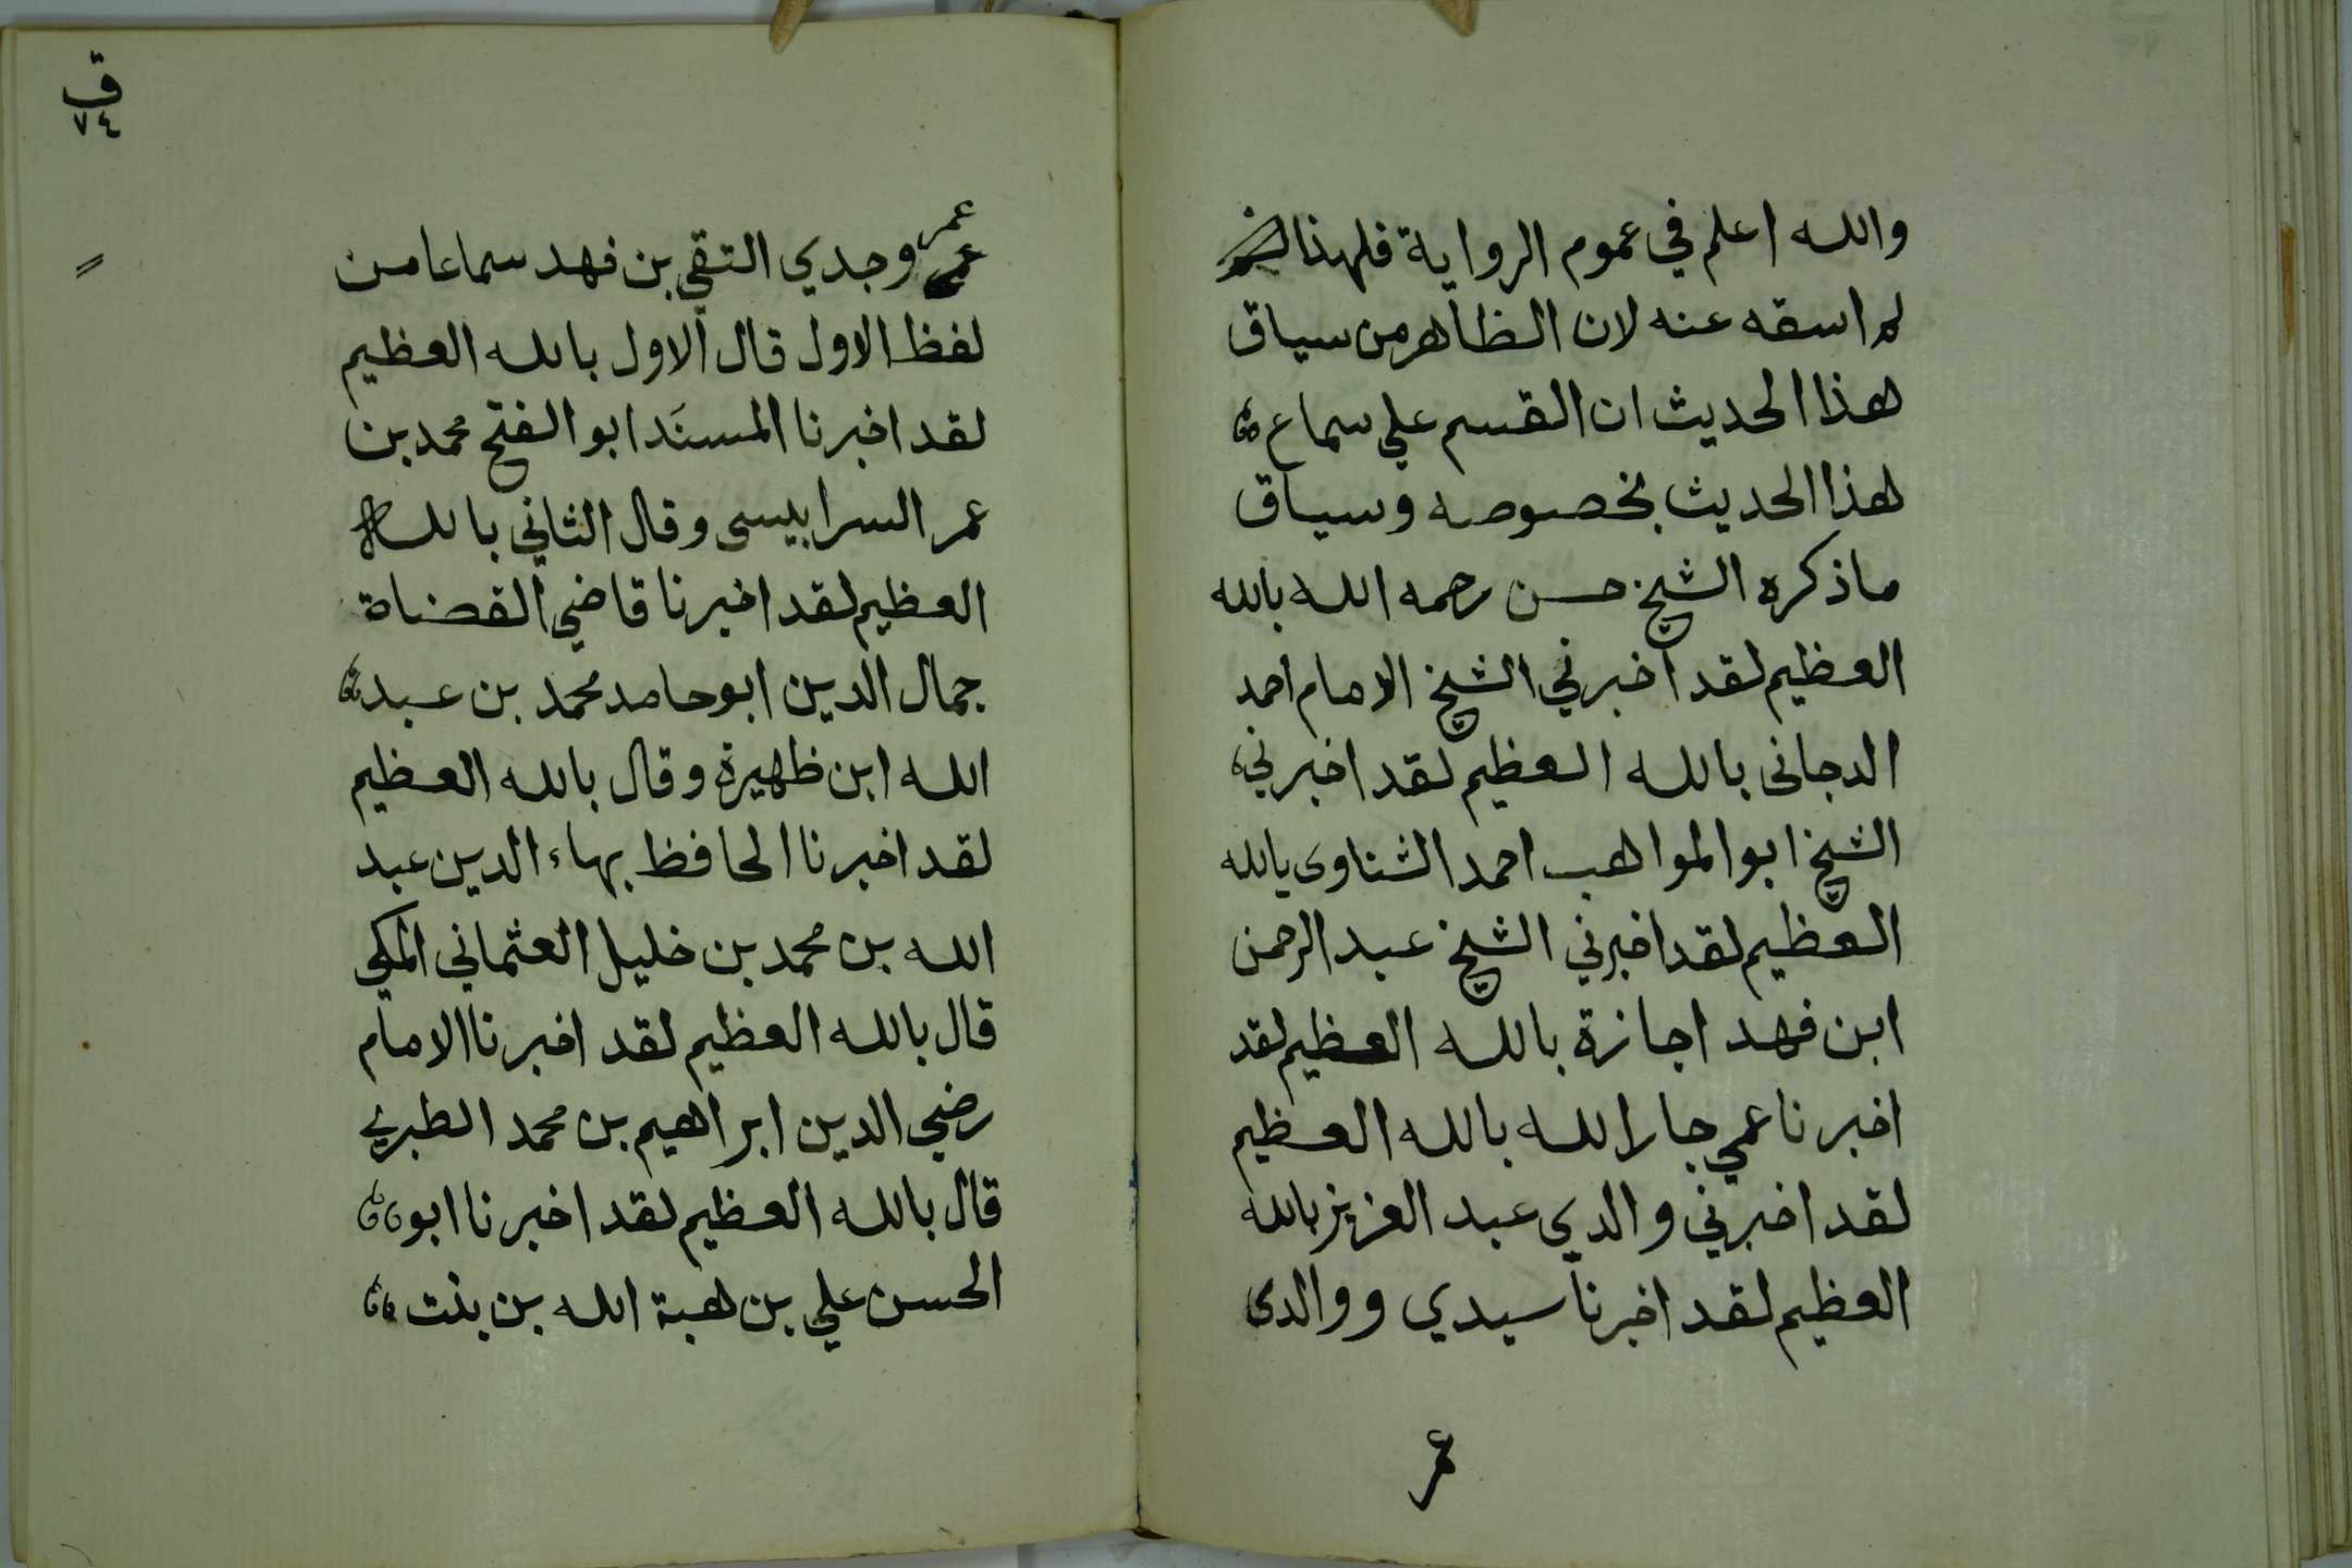 والله اعلم في عموم الرواية فلهذا
لم اسقه عنه لان الظاهر من سياق
هذا الحديث ان القسم علي سماع
هذا الحديث بخصوصه وسياق
ماذكره الشيخ حسن رحمه الله بالله
العظيم لقد اخبرني الشيخ الامام احمد
الدجانى بالله العظيم لقد اخبرني
الشيخ ابو المواهب احمد الشناوى بالله
العظيم لقد اخبرني الشيخ عبد الرحمن
ابن فهد اجازة بالله العظيم لقد
اخبرنا عمي جار الله بالله العظيم
لقد اخبرني والدي عبد العزيز بالله
العظيم لقد اخبرنا سيدي ووالدى
عمر
ق
٧٤
عمر
وجدي التقي بن فهد سماعا من
لفظ الاول قال الاول بالله العظيم
لقد اخبرنا المسنَد ابو الفتح محمد بن
عمر السرابيسى وقال الثاني بالله
العظيم لقد اخبرنا قاضي القضاة
جمال الدين ابو حامد محمد بن عبد
الله ابن ظهيرة وقال بالله العظيم
لقد اخبرنا الحافظ بهاء الدين عبد
الله بن محمد بن خليل العثماني المكي
قال بالله العظيم لقد اخبرنا الامام
رضي الدين ابراهيم بن محمد الطبري
قال بالله العظيم لقد اخبرنا ابو
الحسن علي بن هبة الله بن بنت